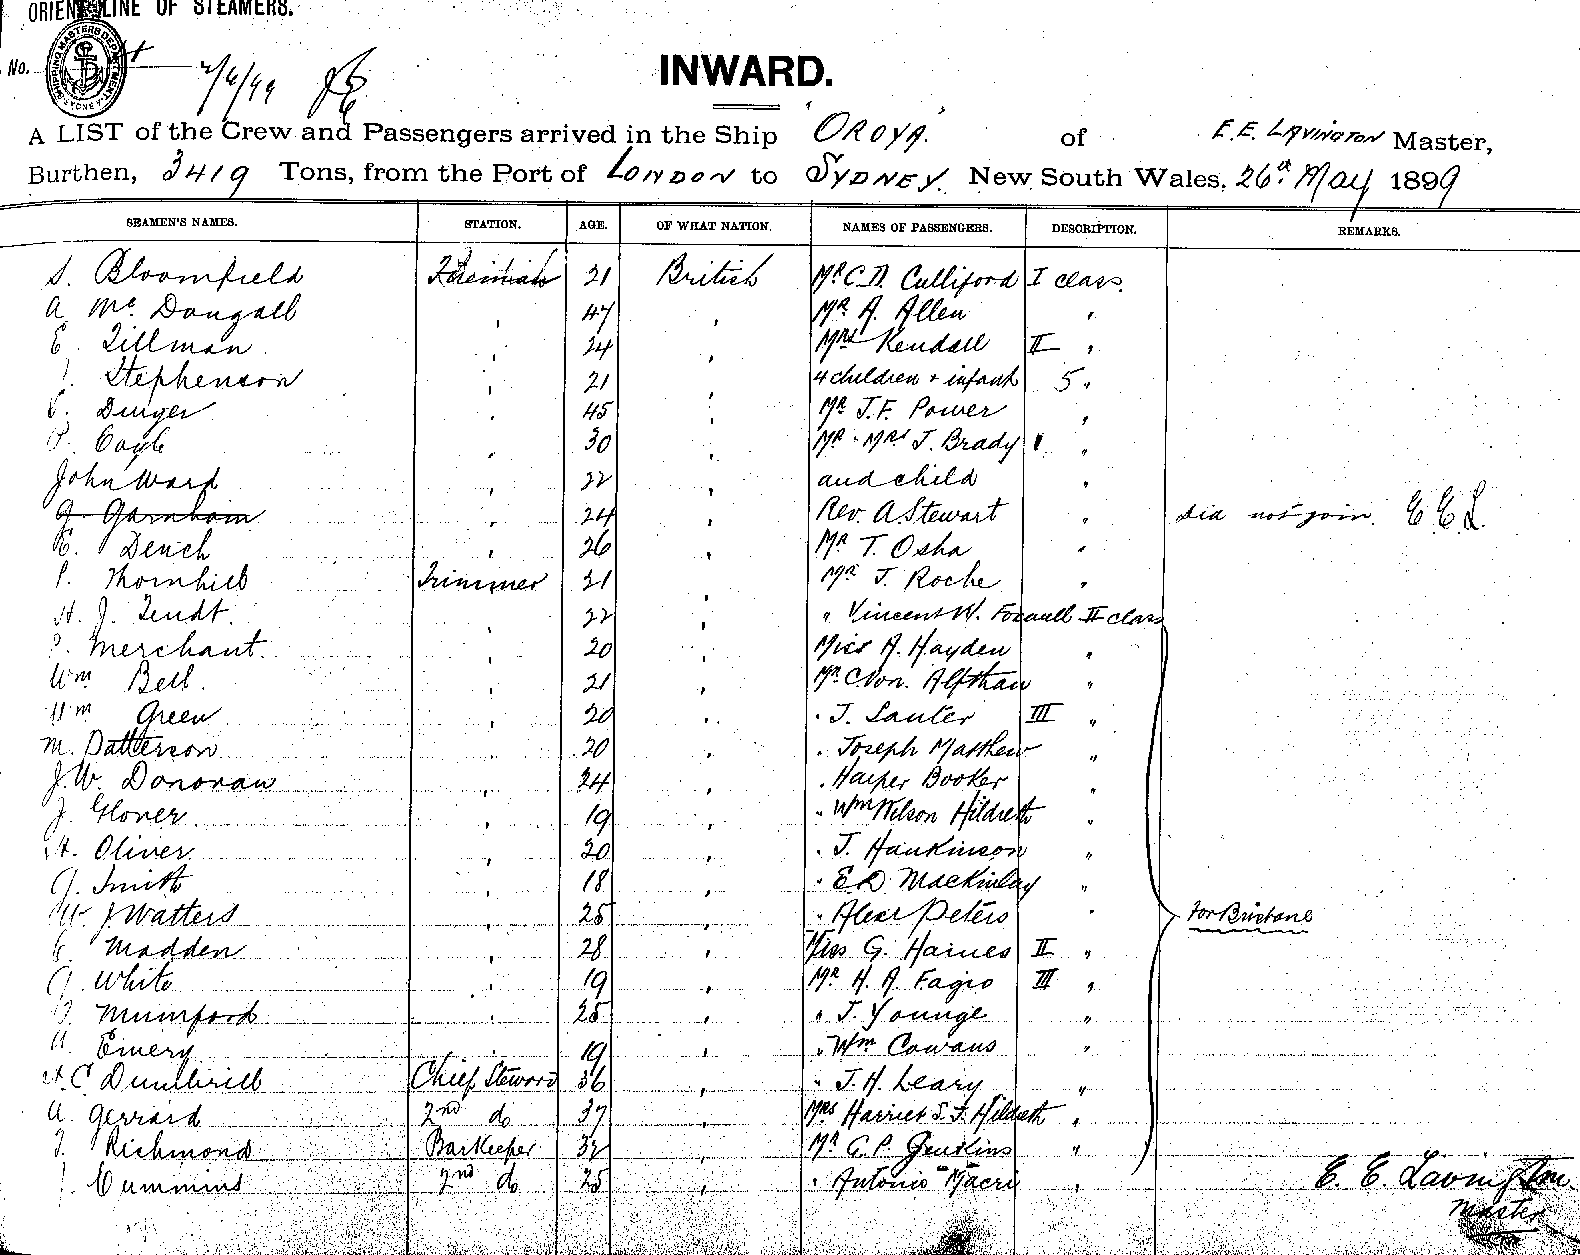 ORIENT LINE OF STEAMERS.
No.
INWARD.
A LIST of the Crew and Passengers arrived in the Ship 'OROYA' of E.E. LAVINGTON Master,
Burthen, 3419 Tons, from the Port of LONDON to SYDNEY. New South Wales, 26th May 1899
SEAMEN'S NAMES. STATION. AGE. OF WHAT NATION. NAMES OF PASSENGERS. DESCRIPTION. REMARKS.
S. Bloomfield 21 British Mr C.D. Culliford I class.
A Mc. Dougall 47 " Mr A. Allen "
E. Tillman " 24 " Mrs Kendall II "
Stephenson " 21 " 4 children + infant 5 "
Dwyer " 45 " Mr J.F. Power "
Cogle " 30 " Mr & Mrs J. Brady "
John Ward " 22 " and child "
G. Garnham " 24 " Rev. A Stewart " did not join. E E L
E. Dench " 26 " Mr T. Osha "
Thornhill Trimmer 21 " Mr J. Roche "
H. J. Tendt. " 22 " " Vincent W. Foxwell II class
Merchant. " 20 " Miss A. Hayden "
Wm Bell. " 21 " Mr C Von. Alfthan "
Wm Green " 20 " " J. Sauter III "
M. Patterson " 20 " " Joseph Matthew "
J.W. Donovan " 24 " " Harper Booker "
J. Glover. " 19 " " Wm Wilson Hildreth "
H. Oliver " 20 " " J. Hankinson "
J. Smith " 18 " " E D Mackinlay "
W. J Watters " 25 " " Alexr Peters " For Brisbane
Madden " 28 " Miss G. Haines II "
J. White " 19 " Mr H. A. Fagio III "
Mumford " 25 " " J. Younge "
Emery " 19 " " Wm Cowans "
H.C. Dumbrill Chief Steward 36 " " J. H. Leary "
A. Gerrard 2nd do 37 " Mrs Harriet S.F. Hildreth "
Richmond Barkeeper 32 " Mr G.P. Jenkins "
Cummins 2nd do 25 " " Antonio Macri "
E. E. Lavington
Master